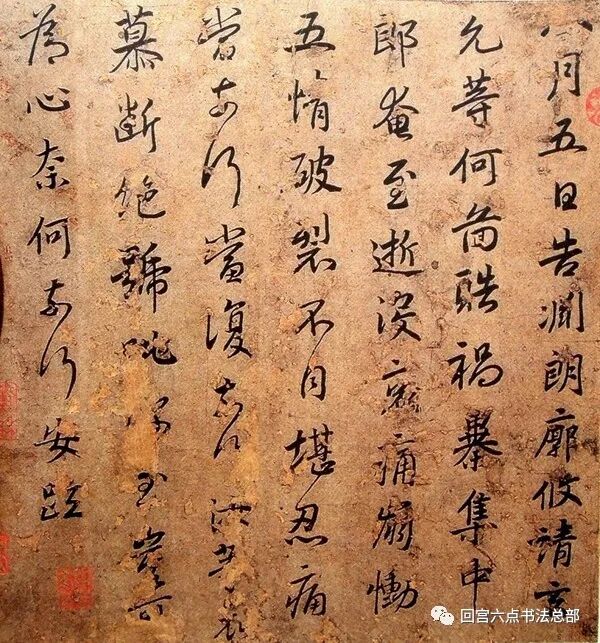 八月五日告淵朗廓攸靖玄
允等何圖酷禍暴集中
郎奄至逝没哀痛崩慟
五情破裂不自堪忍痛
當奈何當復奈何汝等哀
慕斷絶號咷深至豈可
為心奈何奈何安疏
回宫六点书法总部